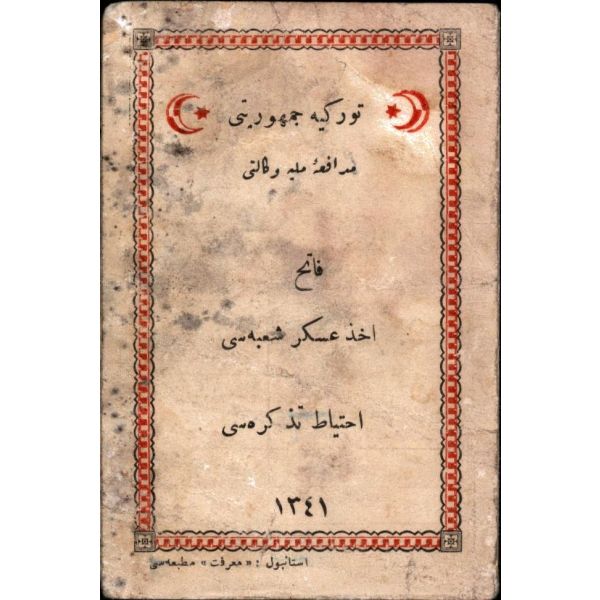 توركیه جمهوریتی
مدافعۀ ملیه وكالتی
فاتح
اخذ عسكر شعبه‌سی
احتیاط تذكره‌سی
١٣٤١
استانبول : «معرفت» مطبعه‌سی